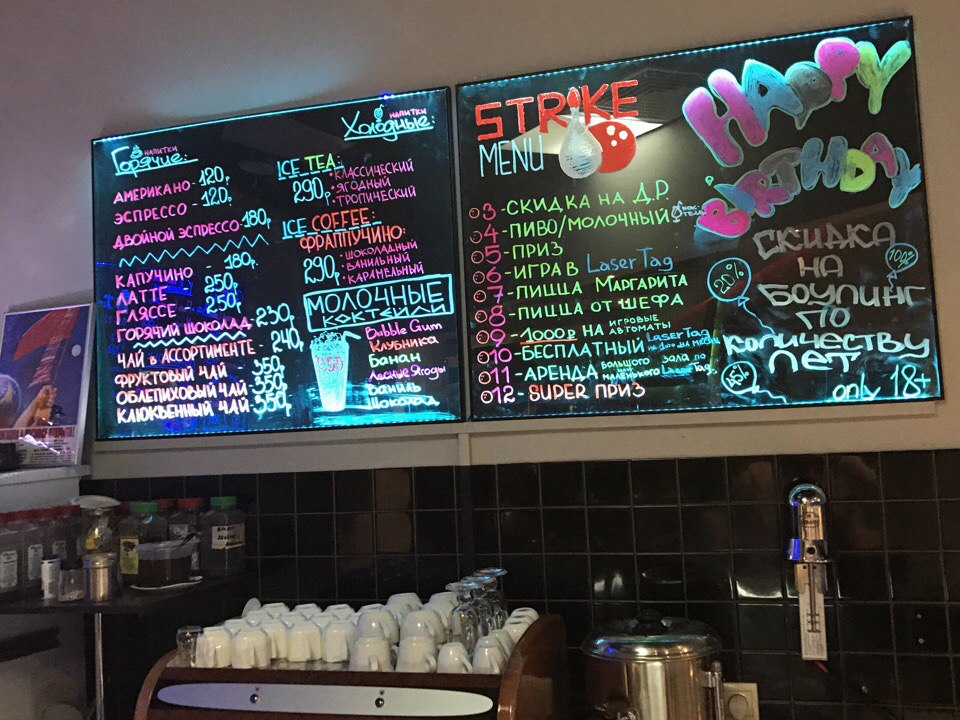 Горячие:
напитки
АМЕРИКАНО - 120р.
ЭСПРЕССО - 120р.
ДВОЙНОЙ ЭСПРЕССО - 180р.
КАПУЧИНО - 180р.
ЛАТТЕ 250р.
ГЛЯССЕ - 250р.
ГОРЯЧИЙ ШОКОЛАД - 230р.
ЧАЙ в АССОРТИМЕНТЕ - 240р.
ФРУКТОВЫЙ ЧАЙ - 350р.
ОБЛЕПИХОВЫЙ ЧАЙ - 350р.
КЛЮКВЕННЫЙ ЧАЙ - 350р.
напитки
Холодные:
ICE TEA:
290р.
• КЛАССИЧЕСКИЙ
• ЯГОДНЫЙ
• ТРОПИЧЕСКИЙ
ICE COFFEE:
ФРАППУЧИНО:
290р.
• ШОКОЛАДНЫЙ
• ВАНИЛЬНЫЙ
• КАРАМЕЛЬНЫЙ
МОЛОЧНЫЕ
КОКТЕЙЛИ
350
Bubble Gum
Клубника
Банан
Лесные Ягоды
Ваниль
Шоколад
STRIKE
MENU
3 - СКИДКА НА Д.Р.
4 - ПИВО/МОЛОЧНЫЙ КОКТЕЙЛЬ
5 - ПРИЗ
6 - ИГРА В Laser Tag
7 - ПИЦЦА МАРГАРИТА
8 - ПИЦЦА ОТ ШЕФА
9 - 1000р НА ИГРОВЫЕ АВТОМАТЫ
10 - БЕСПЛАТНЫЙ Laser Tag
11 - АРЕНДА БОЛЬШОГО МАЛЕНЬКОГО ЗАЛА ПО Laser Tag
12 - SUPER ПРИЗ
HAPPY
BIRTHDAY
СКИДКА
НА
БОУЛИНГ
ПО
КОЛИЧЕСТВУ
ЛЕТ
only 18+
20%
100%